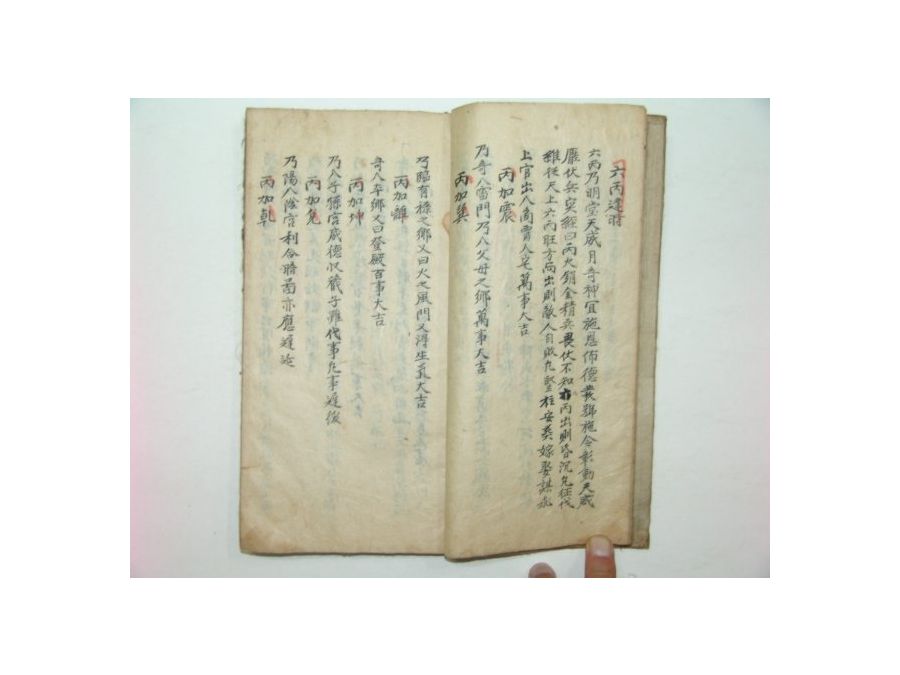 六丙逢時
六丙乃明堂天威月奇神宜施恩佈德發號施令彰動天威
伏兵 經曰丙火銷金精兵畏伏不知 丙出則昏沉 征伐
從天上六丙旺方而出則敵人自敗 安葬嫁娶謀求
上官出入商賈入宅萬事大吉
丙加震
乃奇入雷門乃入父母之鄉萬事大吉
丙加巽
乃臨有祿之鄉又曰火之風門又得生氣大吉
丙加離
奇入卒鄉又曰登殿百事大吉
丙加坤
乃入子孫宮威德收藏 事凡事遲後
丙加兌
乃陽入陰宮利合時 亦應遲迍
丙加乾